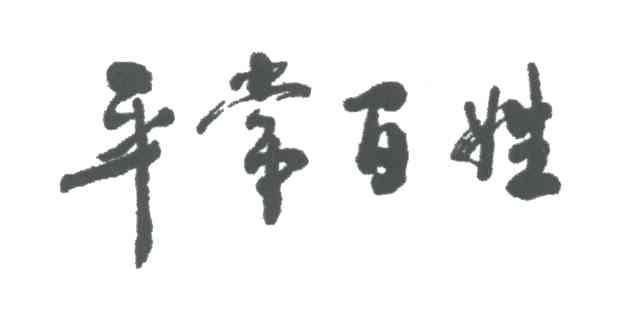 平常百姓